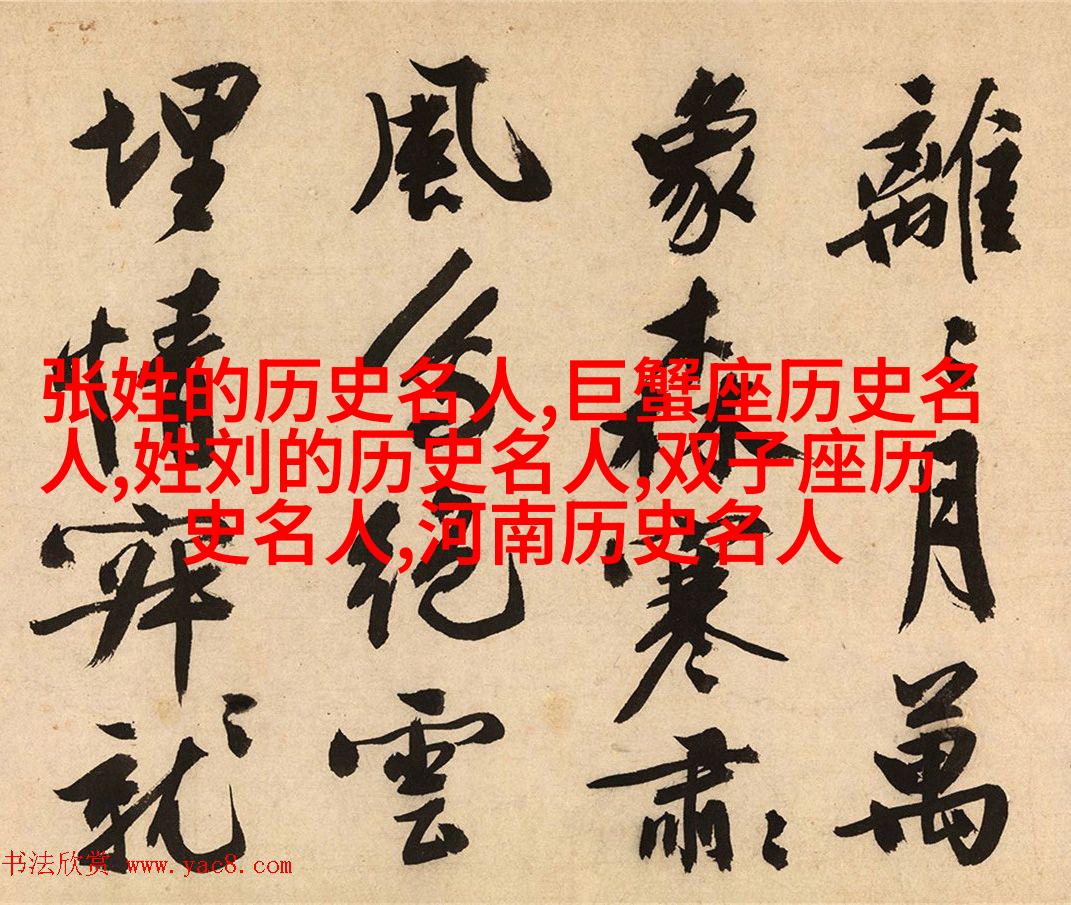 離〻月萬
象森寒肅〻
風絕雲
埋情就
张姓的历史名人,巨蟹座历史名
人,姓刘的历史名人,双子座历
史名人,河南历史名人
书法欣赏 www.yac8.com